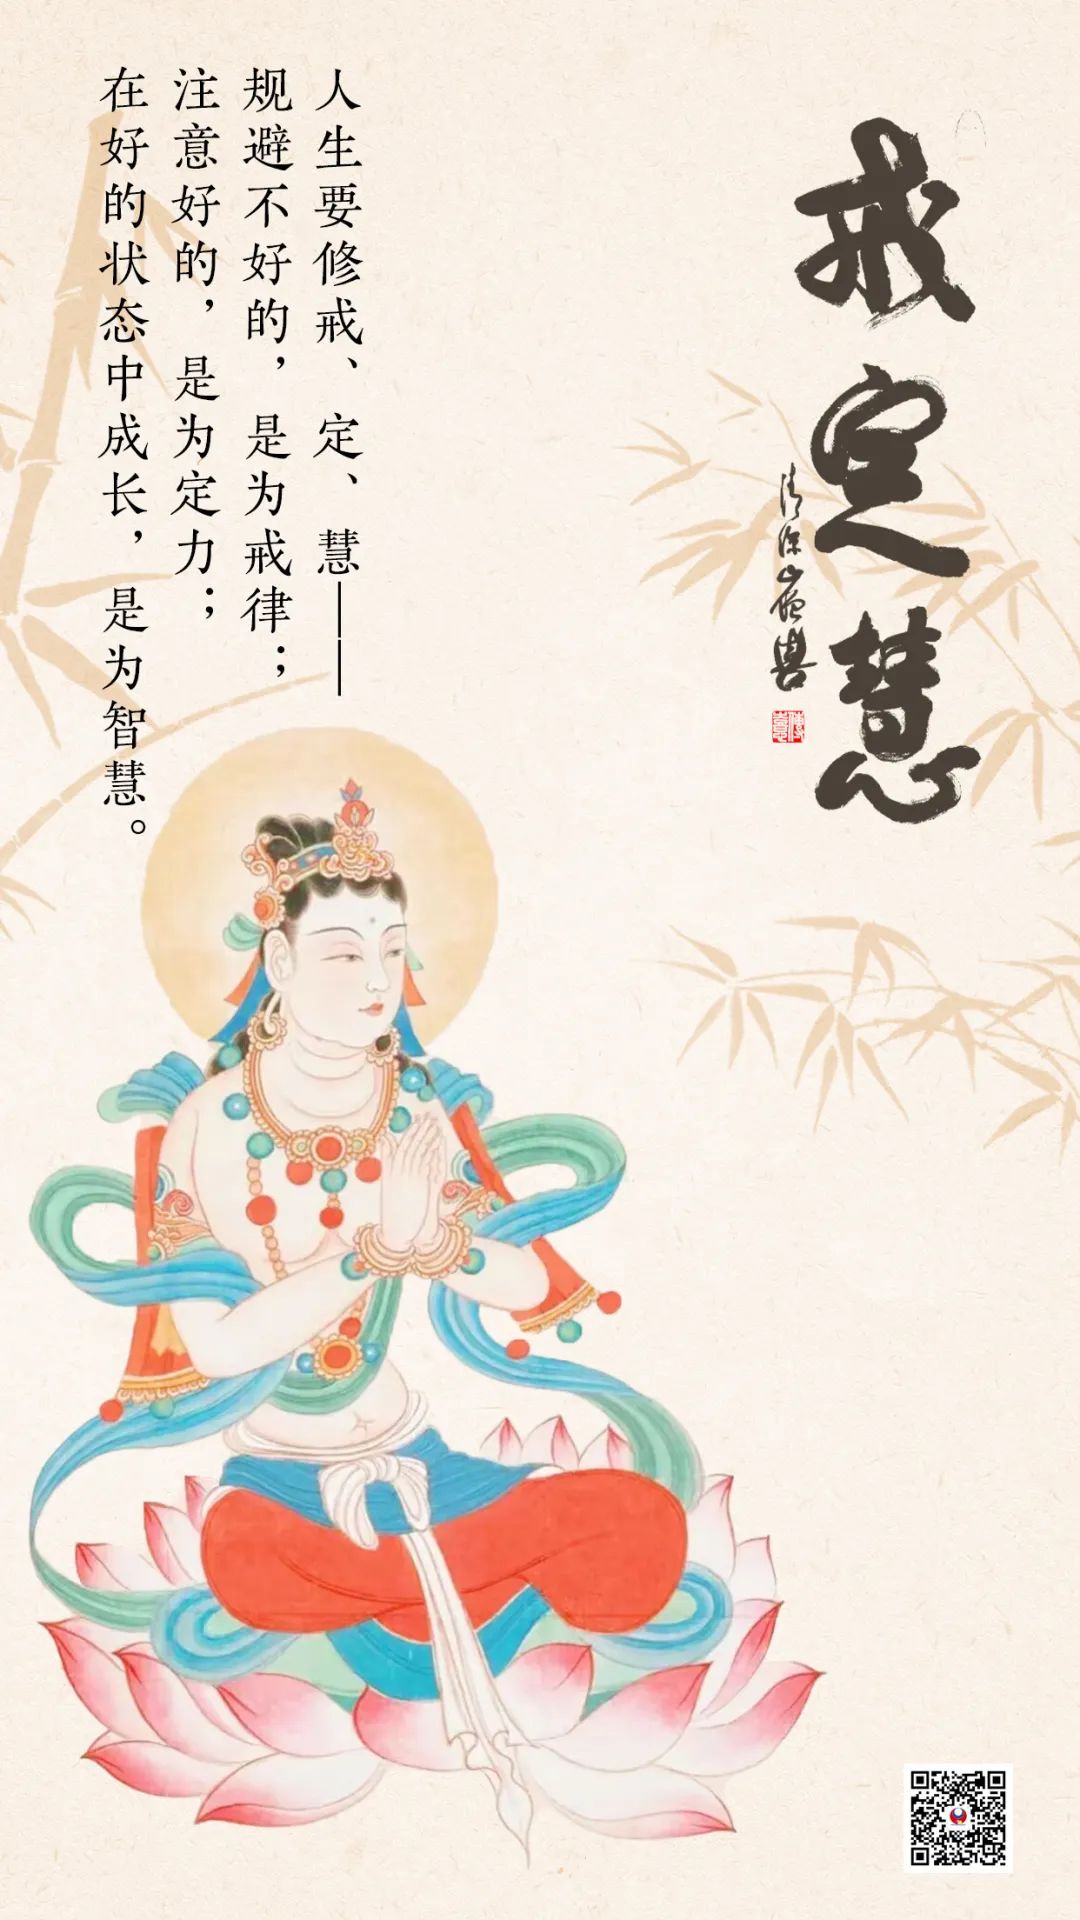 戒定慧
人生要修戒、定、慧——
规避不好的，是为戒律；
注意好的，是为定力；
在好的状态中成长，是为智慧。